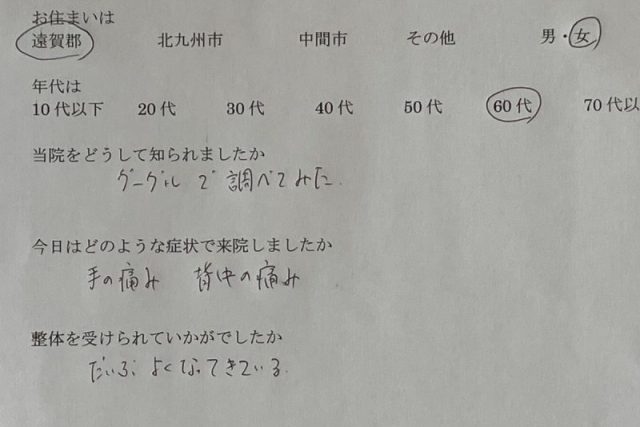 お住まいは
遠賀郡 北九州市 中間市 その他 男・女
年代は
10代以下 20代 30代 40代 50代 60代 70代以
当院をどうして知られましたか
グーグルで調べてみた.
今日はどのような症状で来院しましたか
手の痛み 背中の痛み
整体を受けられていかがでしたか
だいぶよくなってきている.